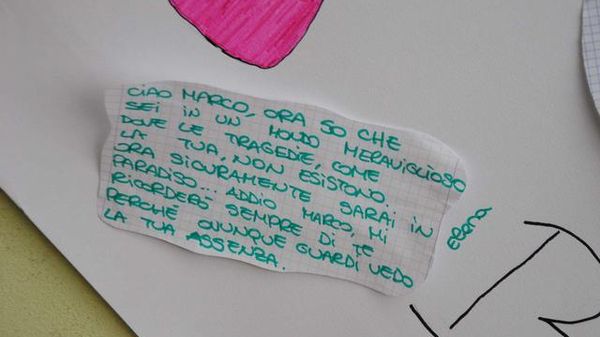 CIAO MARCO, ORA SO CHE
SEI IN UN MONDO MERAVIGLIOSO
DOVE LE TRAGEDIE, COME
LA TUA, NON ESISTONO.
ORA SICURAMENTE SARAI IN
PARADISO... ADDIO MARCO, MI
RICORDERÒ SEMPRE DI TE
PERCHÉ OVUNQUE GUARDI VEDO
LA TUA ASSENZA.
ELENA
R